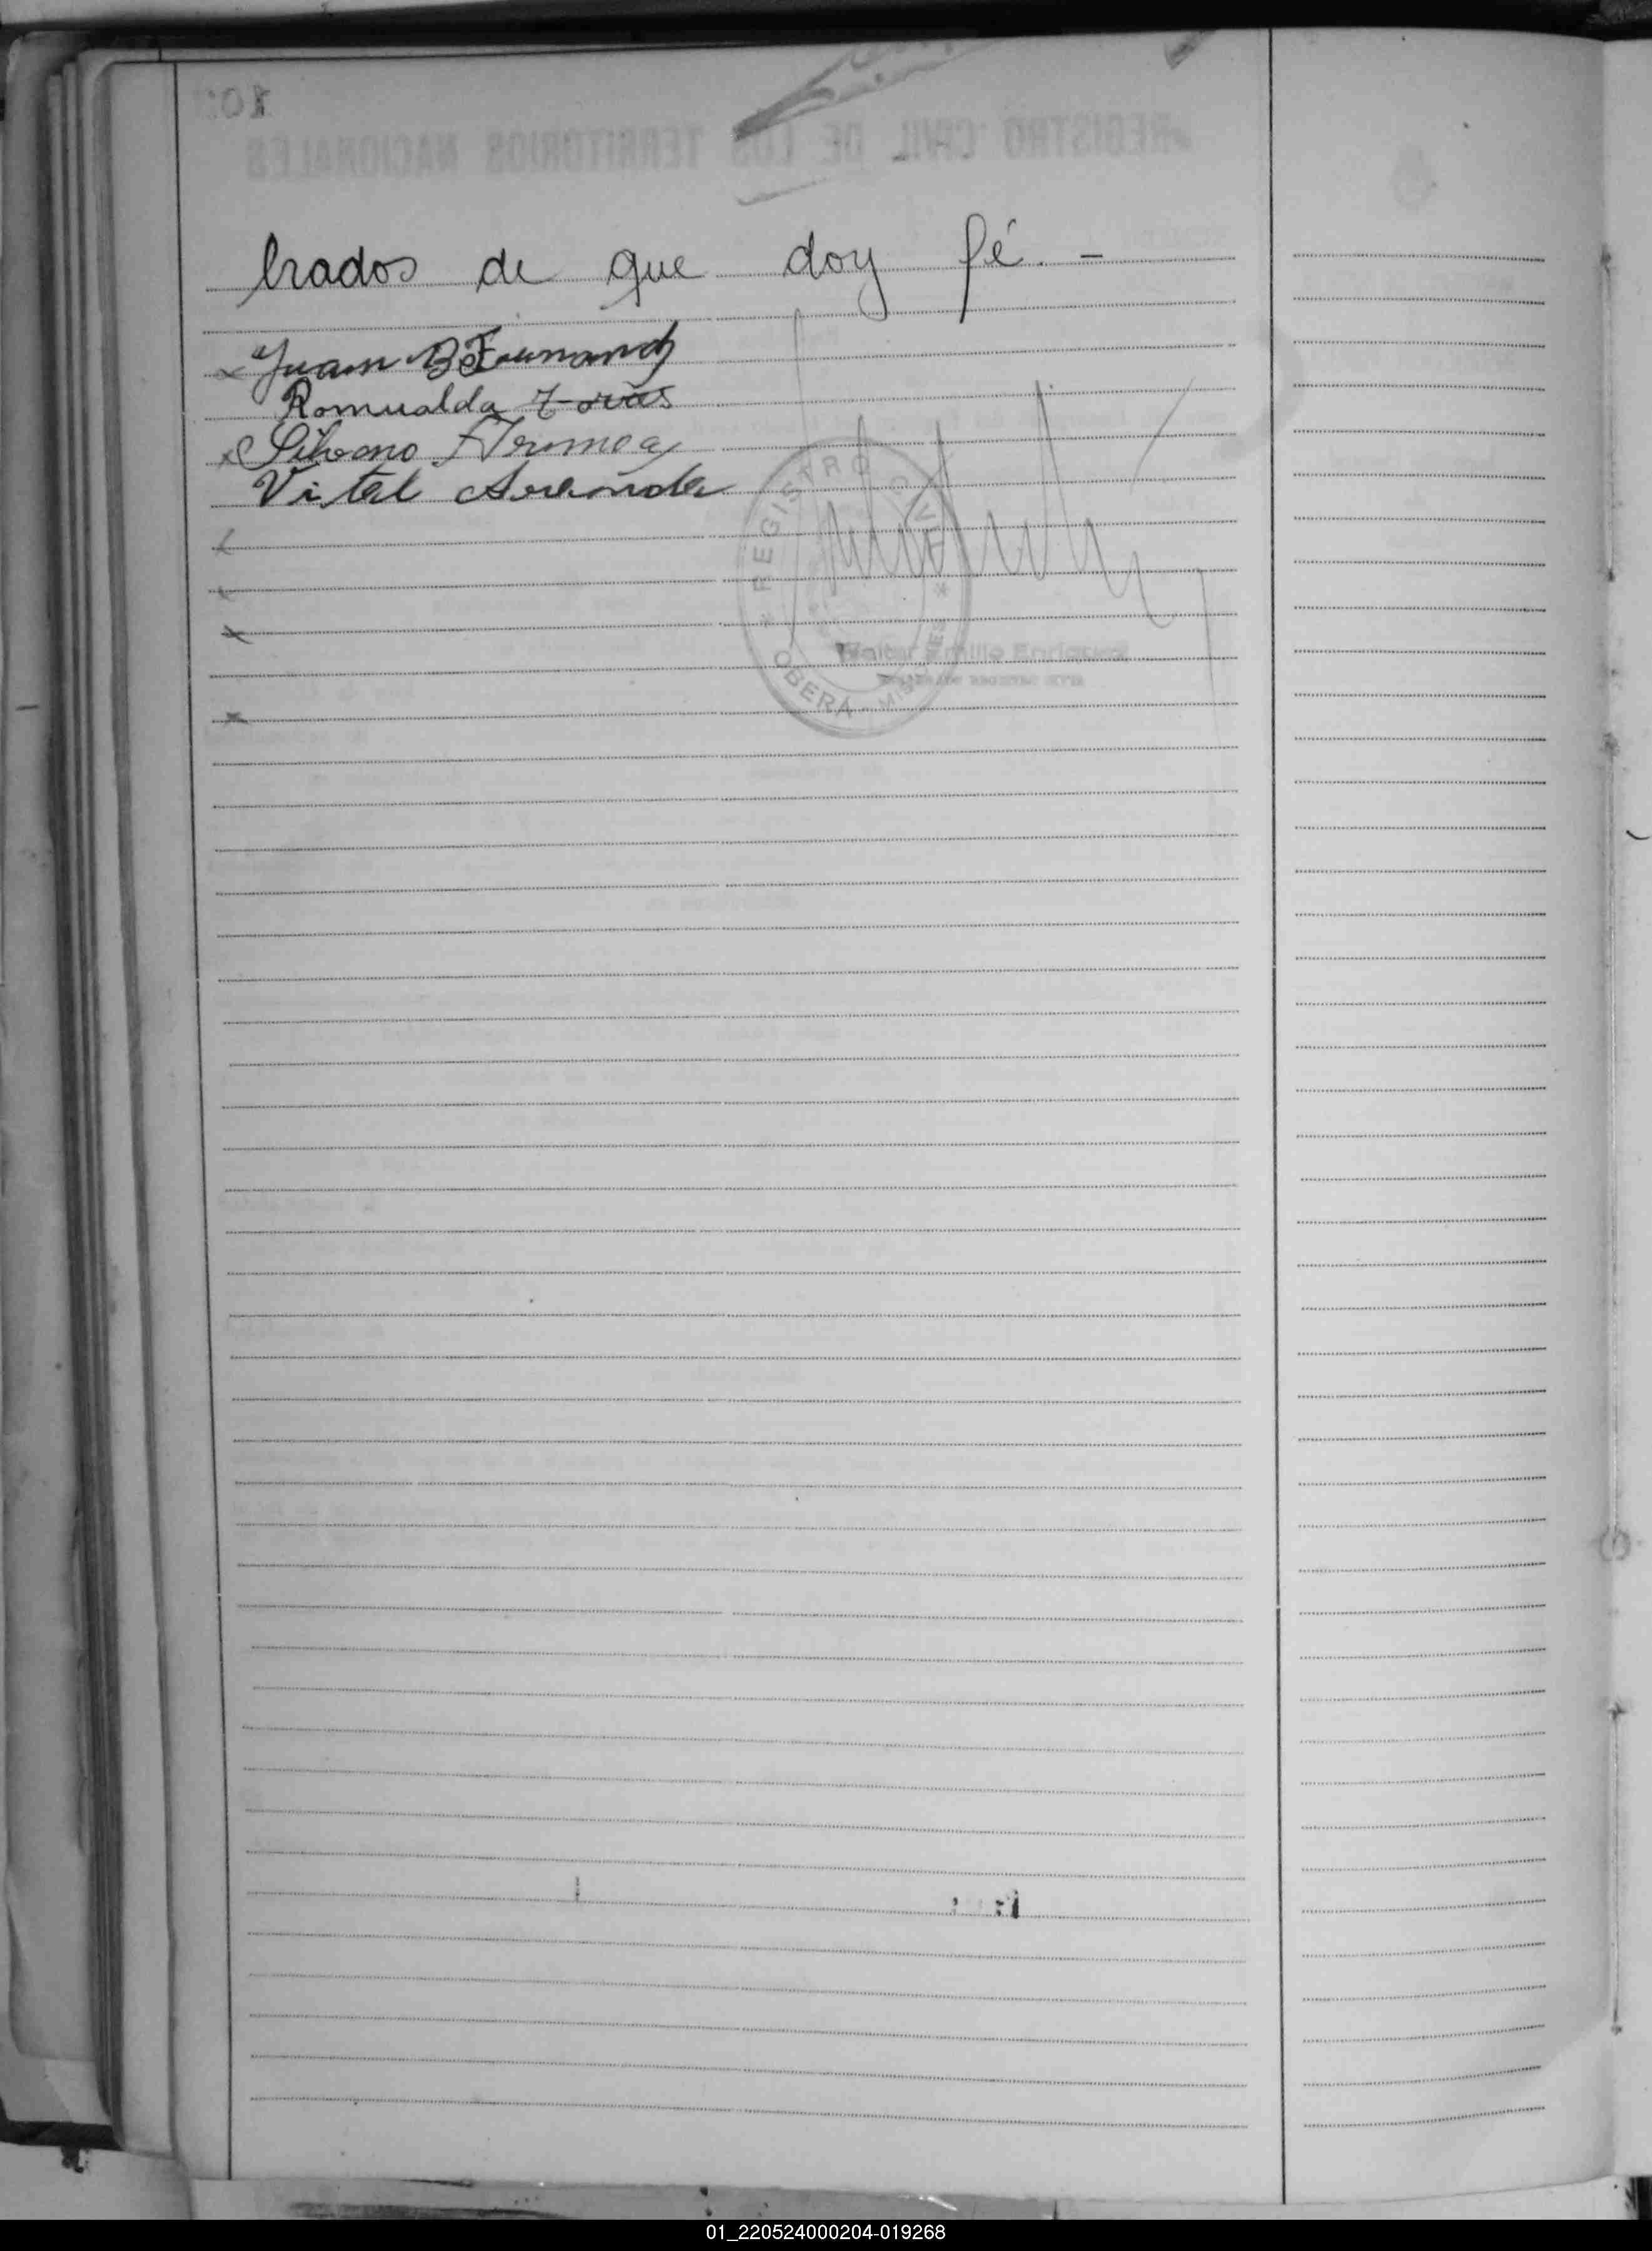 brados de que doy fé. -
Juan B. Fernandz
Romualda
Silvano
Vital Aranda
REGISTRO CIVIL
OBERÁ - MISIONES
Walter Emilio Enriquez
ENCARGADO REGISTRO CIVIL
01_220524000204-019268